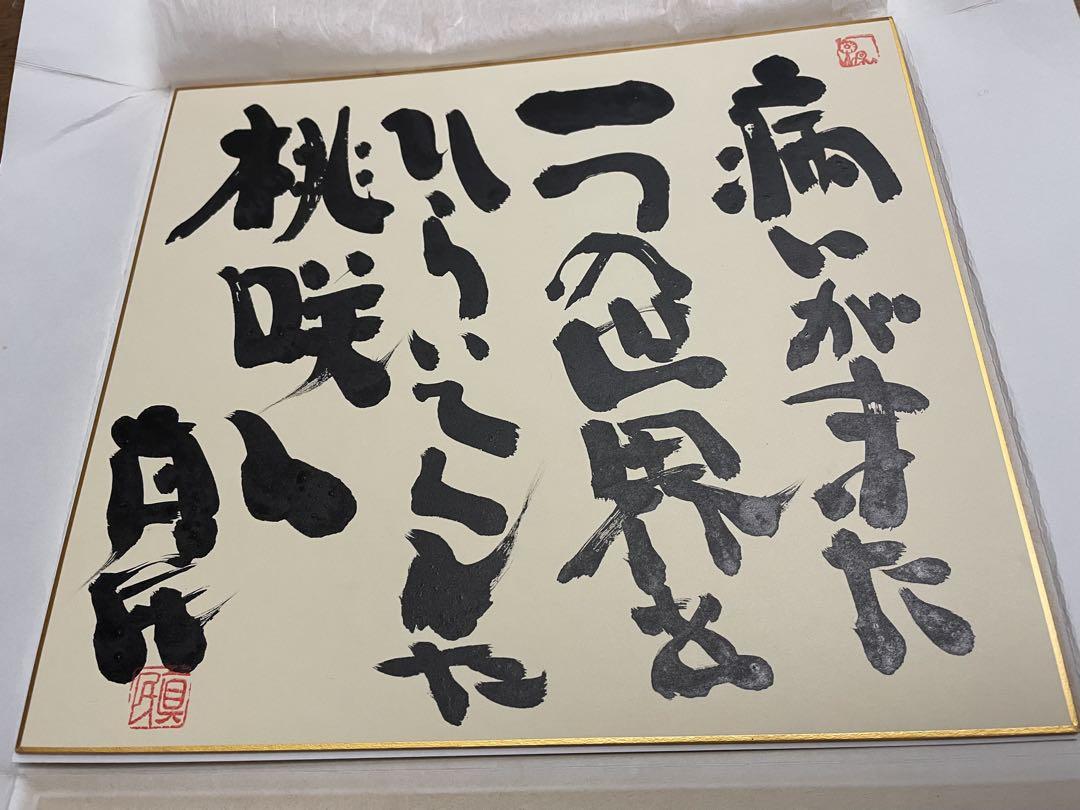 病いがまた
一つの世界を
ひらいてくれた
桃咲く
真民